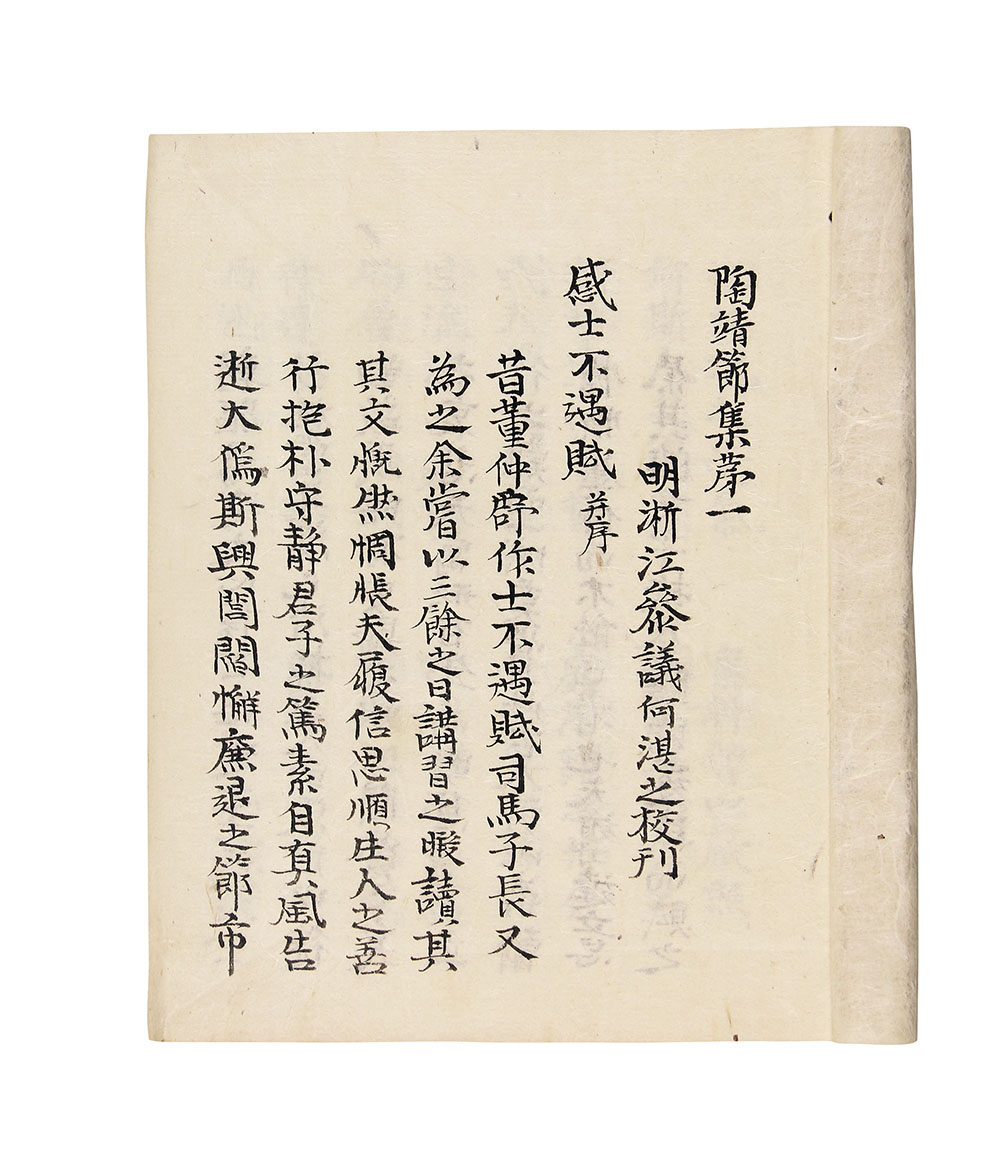 陶靖節集苐一
明淅江叅議何湛之校刊
感士不遇賦 并序
昔董仲舒作士不遇賦司馬子長又
為之余嘗以三餘之日講習之暇讀其
其文慨然惆悵夫履信思順生人之善
行抱朴守静君子之篤素自真風告
逝大偽斯興閭閻懈廉退之節市